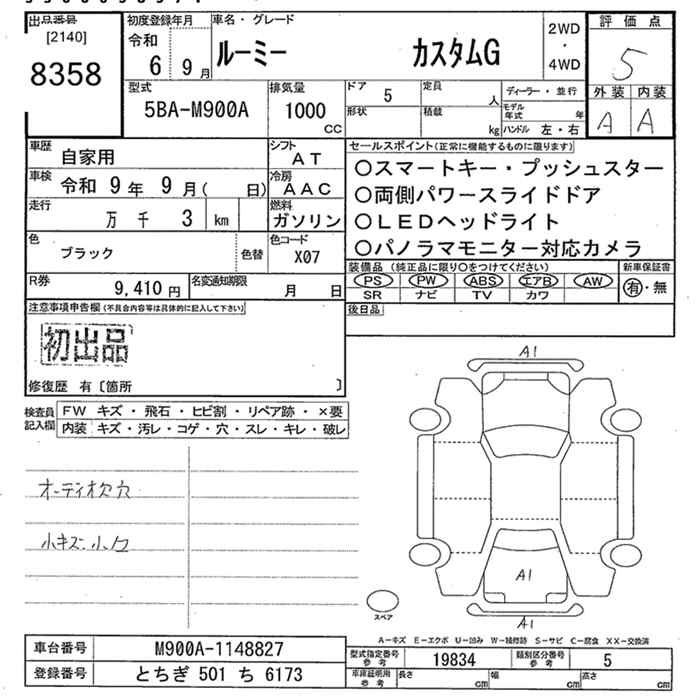 出品番号
[2140]
8358
初度登録年月
令和
6 9 月
車名・グレード
ルーミー カスタムG
2WD
・
4WD
評価点
5
外装 内装
A A
型式
5BA-M900A
排気量
1000
CC
ドア 5
定員
人
形状
積載
kg
ディーラー・並行
モデル年式 年
ハンドル 左・右
車歴 自家用
シフト
AT
車検 令和 9 年 9 月( 日)
冷房
AAC
走行 万 千 3 km
燃料
ガソリン
色 ブラック 色替
色コード
X07
R券 9,410 円
名変通知期限
月 日
セールスポイント(正常に機能するものに限ります)
○スマートキー・プッシュスター
○両側パワースライドドア
○LEDヘッドライト
○パノラマモニター対応カメラ
装備品(純正品に限り○をつけてください)
PS PW ABS エアB AW
SR ナビ TV カワ
新車保証書
有・無
後日品
注意事項申告欄(不具合内容等は具体的に記入して下さい)
初出品
修復歴 有〔箇所 〕
検査員記入欄
FW キズ・飛石・ヒビ割・リペア跡・×要
内装 キズ・汚レ・コゲ・穴・スレ・キレ・破レ
オーディオ欠穴
小キズ.小凹
A1
A1
A1
スペア
A-キズ E-エクボ U-凹み W-補修跡 S-サビ C-腐食 XX-交換済
車台番号 M900A-1148827
登録番号 とちぎ 501 ち 6173
型式指定番号参考 19834
類別区分番号参考 5
車庫証明用参考
長さ cm
幅 cm
高さ cm